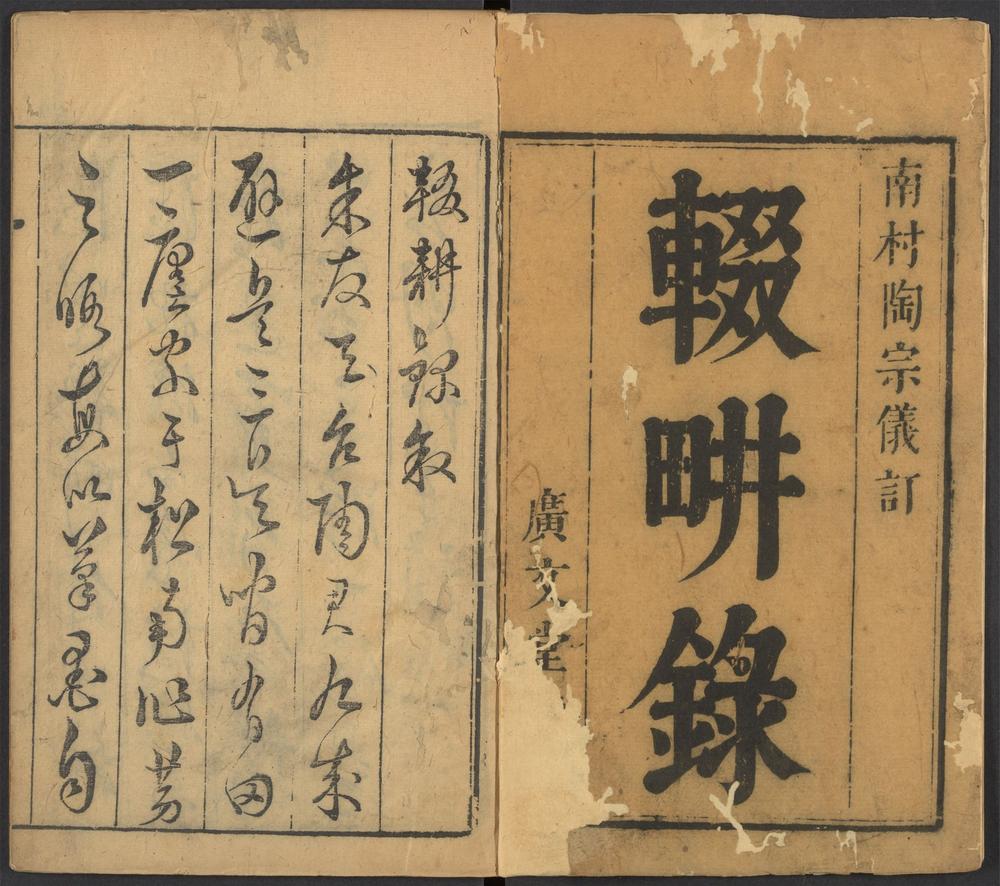 南村陶宗儀訂
輟畊錄
廣文堂
輟耕錄叙
余友天台陶君九成
避兵三吳間有田
一廛家于松南作勞
之暇每以筆墨自